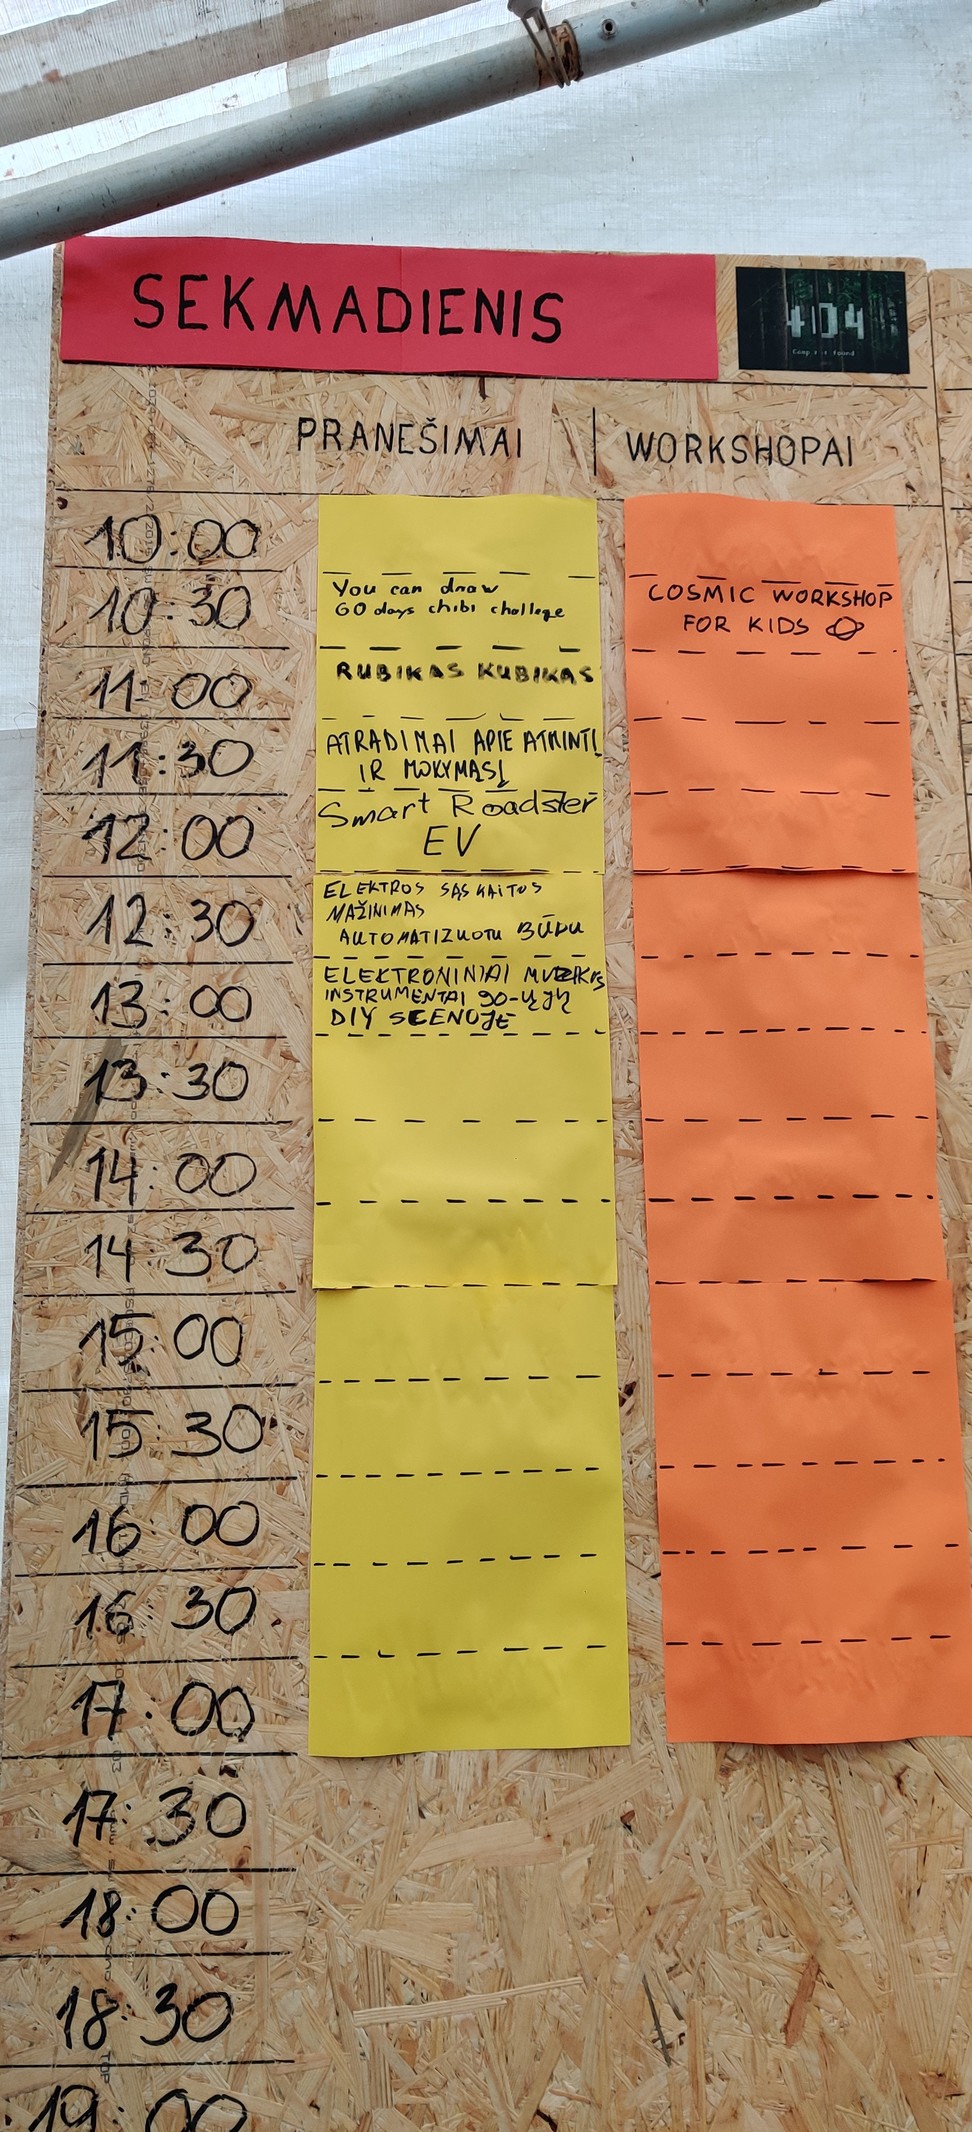 SEKMADIENIS
404
Camp not found
PRANEŠIMAI | WORKSHOPAI
10:00
10:30
You can draw
60 days chibi challege
COSMIC WORKSHOP
FOR KIDS
11:00
RUBIKAS KUBIKAS
11:30
ATRADIMAI APIE ATMINTĮ
IR MOKYMĄSĮ
12:00
Smart Roadster
EV
12:30
ELEKTROS SĄSKAITOS
MAŽINIMAS
AUTOMATIZUOTU BŪDU
13:00
ELEKTRONINIAI MUZIKOS
INSTRUMENTAI 90-ŲJŲ
DIY SCENOJE
13:30
14:00
14:30
15:00
15:30
16:00
16:30
17:00
17:30
18:00
18:30
19:00